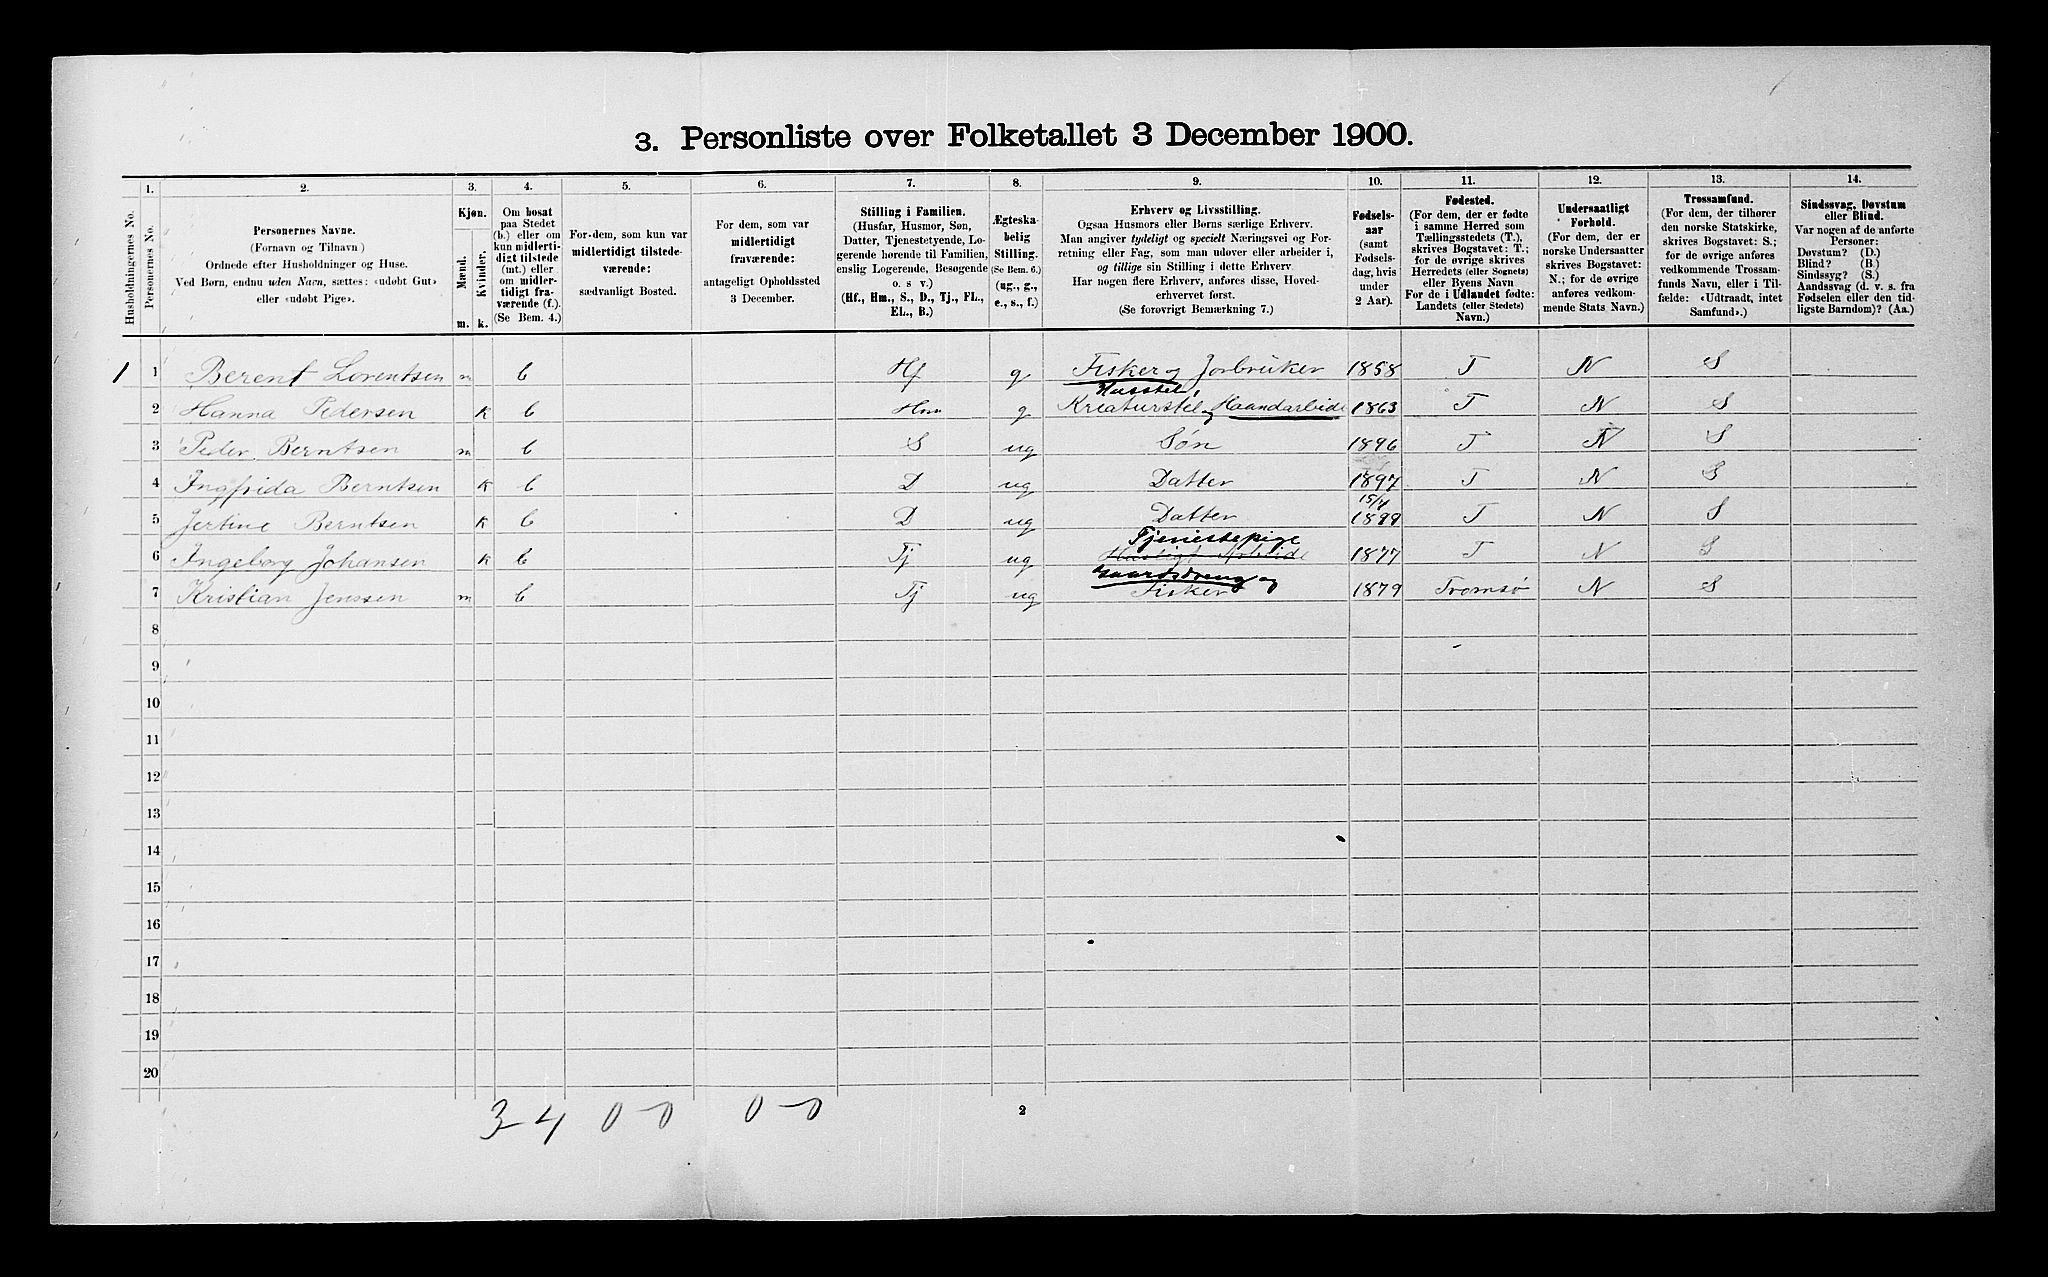 3. Personliste over Folketallet 3 December 1900.
1. 2. 3. 4. 5. 6. 7. 8. 9. 10. 11. 12. 13. 14.
Husholdningernes No.
Personernes No.
Personernes Navne.
(Fornavn og Tilnavn)
Ordnede efter Husholdninger og Huse.
Ved Børn, endnu uden Navn, sættes: «udøbt Gut»
eller «udøbt Pige».
Kjøn.
Mænd.
Kvinder.
m. k.
Om bosat
paa Stedet
(b.) eller om
kun midlerti-
digt tilstede
(mt.) eller
om midler-
tidigt fra-
værende (f.).
(Se Bem. 4.)
For dem, som kun var
midlertidigt tilstede-
værende:
sædvanligt Bosted.
For dem, som var
midlertidigt
fraværende:
antageligt Opholdssted
3 December.
Stilling i Familien.
(Husfar, Husmor, Søn,
Datter, Tjenestetyende, Lo-
gerende hørende til Familien,
enslig Logerende, Besøgende
o. s v.)
(Hf., Hm., S., D., Tj., FL.,
EL., B.)
Ægteska-
belig
Stilling.
(Se Bem. 6.)
(ug., g.,
e., s., f.)
Erhverv og Livsstilling.
Ogsaa Husmors eller Børns særlige Erhverv.
Man angiver tydeligt og specielt Næringsvei og For-
retning eller Fag, som man udøver eller arbeider i,
og tillige sin Stilling i dette Erhverv.
Har nogen flere Erhverv, anføres disse, Hoved-
erhvervet først.
(Se forøvrigt Bemærkning 7.)
Fødsels-
aar
(samt
Fødsels-
dag, hvis
under
2 Aar).
Fødested.
(For dem, der er fødte
i samme Herred som
Tællingsstedets (T.),
skrives Bogstavet: T.;
for de øvrige skrives
Herredets (eller Sognets)
eller Byens Navn
For de i Udlandet fødte:
Landets (eller Stedets)
Navn.)
Undersaatligt
Forhold.
(For dem, der er
norske Undersaatter
skrives Bogstavet:
N.; for de øvrige
anføres vedkom-
mende Stats Navn.)
Trossamfund.
(For dem, der tilhører
den norske Statskirke,
skrives Bogstavet: S.;
for de øvrige anføres
vedkommende Trossam-
funds Navn, eller i Til-
fælde: «Udtraadt, intet
Samfund».)
Sindssvag, Døvstum
eller Blind.
Var nogen af de anførte
Personer:
Døvstum? (D.)
Blind? (B.)
Sindssyg? (S.)
Aandssvag (d. v. s. fra
Fødselen eller den tid-
ligste Barndom)? (Aa.)
1 1 Berent Lorentsen m b Hf g Fisker og Jorbruker 1858 T N S
Husstel,
2 Hanna Pedersen K b Hm g Kreaturstel og Haandarbide 1863 T N S
3 Peder Berntsen m b S ug Søn 1896 T N S
4 Ingfrida Berntsen K b D ug Datter 1897 T N S
15/4
5 Jertine Berntsen K b D ug Datter 1899 T N S
Tjenestepige
6 Ingeborg Johansen K b Tj ug Husligt Arbeide 1877 T N S
Gaardsdreng og
7 Kristian Jenssen m b Tj ug Fisker 1879 Tromsø N S
8
9
10
11
12
13
14
15
16
17
18
19
20
3-4 0-0 0-0
2